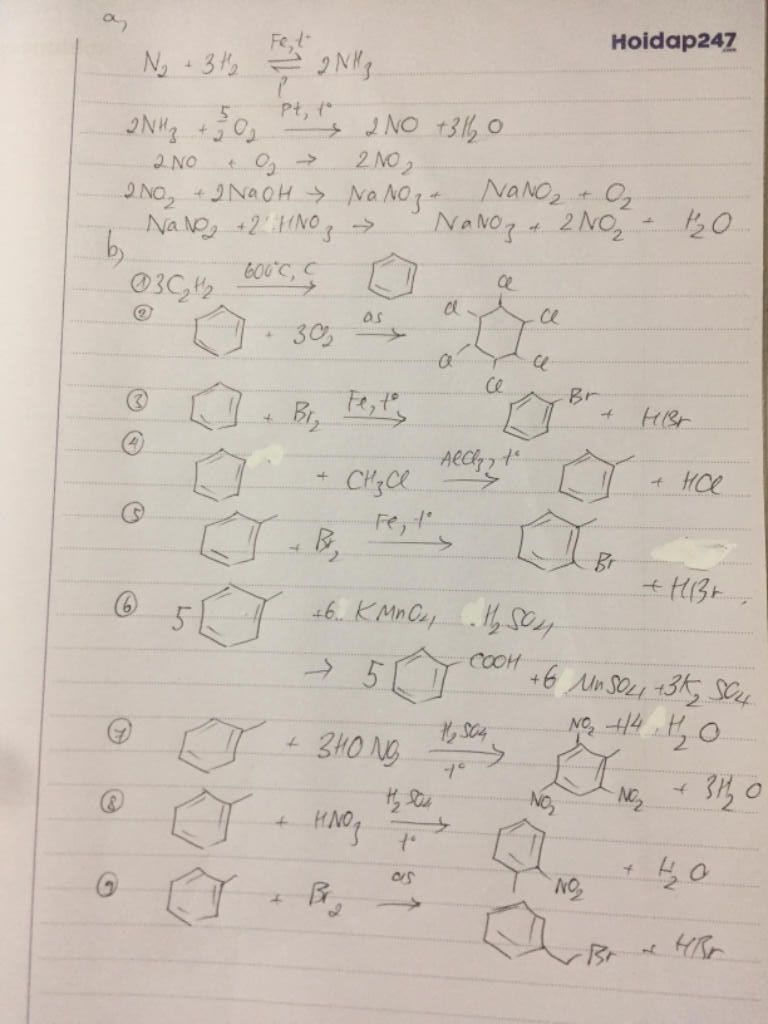 a,
Hoidap247
.com
N2 + 3H2 ⇌ 2NH3 (Fe, t° / p)
2NH3 + 5/2 O2 → 2NO + 3H2O (Pt, t°)
2NO + O2 → 2NO2
2NO2 + 2NaOH → NaNO3 + NaNO2 + O2
NaNO2 + 2 HNO3 → NaNO3 + 2NO2 + H2O
b,
① 3C2H2 → (600°C, C)
② + 3Cl2 → (as) Cl Cl Cl Cl Cl Cl
③ + Br2 → (Fe, t°) Br + HBr
④ + CH3Cl → (AlCl3, t°) + HCl
⑤ + Br2 → (Fe, t°) Br + HBr
⑥ 5 + 6 KMnO4 H2SO4
→ 5 COOH + 6 MnSO4 + 3K2SO4
+ 14 H2O
⑦ + 3HONO2 → (H2SO4, t°) NO2 NO2 NO2 + 3H2O
⑧ + HNO3 → (H2SO4, t°) NO2 + H2O
⑨ + Br2 → (as) Br + HBr